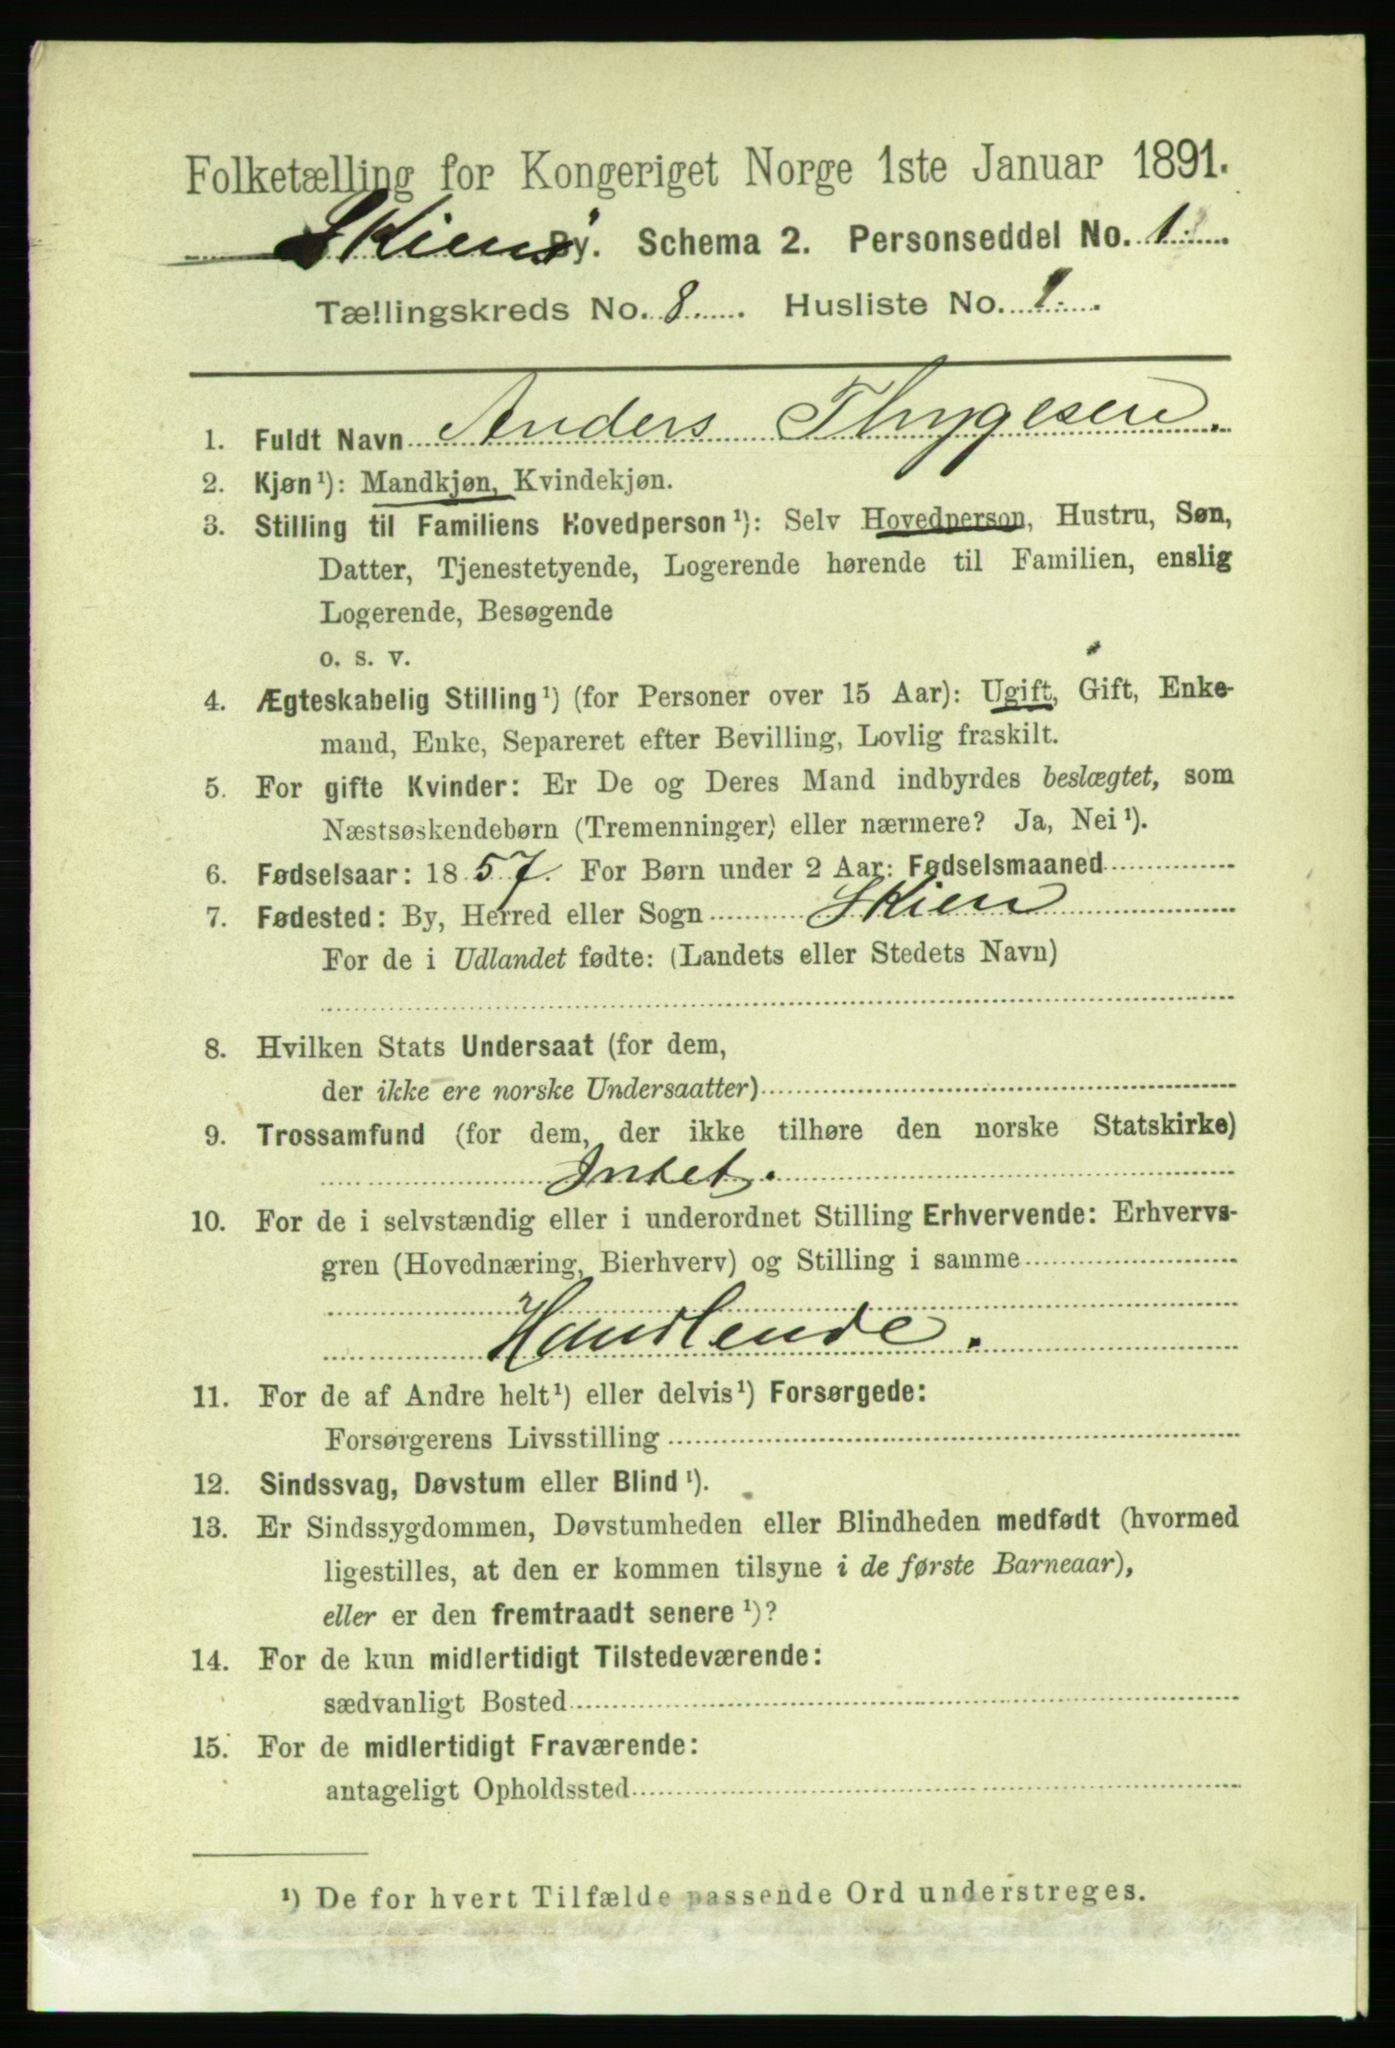 Folketælling for Kongeriget Norge 1ste Januar 1891.
Skiens By. Schema 2. Personseddel No. 1
Tællingskreds No. 8. Husliste No. 1.
1. Fuldt Navn Anders Thygesen.
2. Kjøn¹): Mandkjøn, Kvindekjøn.
3. Stilling til Familiens Hovedperson¹): Selv Hovedperson, Hustru, Søn,
Datter, Tjenestetyende, Logerende hørende til Familien, enslig
Logerende, Besøgende
o. s. v.
4. Ægteskabelig Stilling¹) (for Personer over 15 Aar): Ugift, Gift, Enke-
mand, Enke, Separeret efter Bevilling, Lovlig fraskilt.
5. For gifte Kvinder: Er De og Deres Mand indbyrdes beslægtet, som
Næstsøskendebørn (Tremenninger) eller nærmere? Ja, Nei¹).
6. Fødselsaar: 1857. For Børn under 2 Aar: Fødselsmaaned
7. Fødested: By, Herred eller Sogn Skien
For de i Udlandet fødte: (Landets eller Stedets Navn)
8. Hvilken Stats Undersaat (for dem,
der ikke ere norske Undersaatter)
9. Trossamfund (for dem, der ikke tilhøre den norske Statskirke)
Intet.
10. For de i selvstændig eller i underordnet Stilling Erhvervende: Erhvervs-
gren (Hovednæring, Bierhverv) og Stilling i samme
Handlende.
11. For de af Andre helt¹) eller delvis¹) Forsørgede:
Forsørgerens Livsstilling
12. Sindssvag, Døvstum eller Blind¹).
13. Er Sindssygdommen, Døvstumheden eller Blindheden medfødt (hvormed
ligestilles, at den er kommen tilsyne i de første Barneaar),
eller er den fremtraadt senere¹)?
14. For de kun midlertidigt Tilstedeværende:
sædvanligt Bosted
15. For de midlertidigt Fraværende:
antageligt Opholdssted
¹) De for hvert Tilfælde passende Ord understreges.